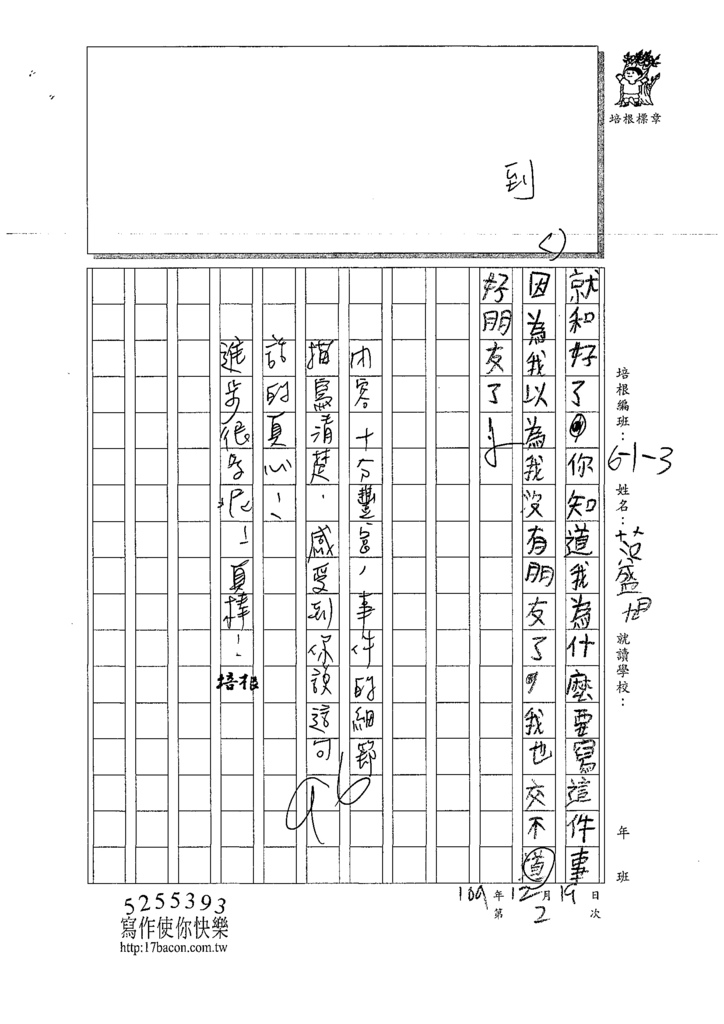 培根標章
到
培根編班：6-1-3 姓名：范盛旭 就讀學校： 年 班
就和好了，你知道我為什麼要寫這件事
因為我以為我沒有朋友了，我也交不道
好朋友了
內容十分豐富，事件的細節
描寫清楚，感受到你說這句
話的真心！
進步很多呢！真棒！培根
96
109年12月19日
第2次
5255393
寫作使你快樂
http:17bacon.com.tw